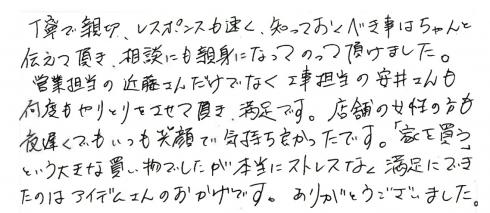 丁寧で親切、レスポンスも速く、知っておくべき事はちゃんと
伝えて頂き、相談にも親身になってのって頂けました。
営業担当の近藤さんだけでなく工事担当の安井さんも
何度もやりとりをさせて頂き、満足です。店舗の女性の方も
夜遅くでもいつも笑顔で気持ち良かったです。「家を買う」
という大きな買い物でしたが本当にストレスなく満足にでき
たのはアイデムさんのおかげです。ありがとうございました。